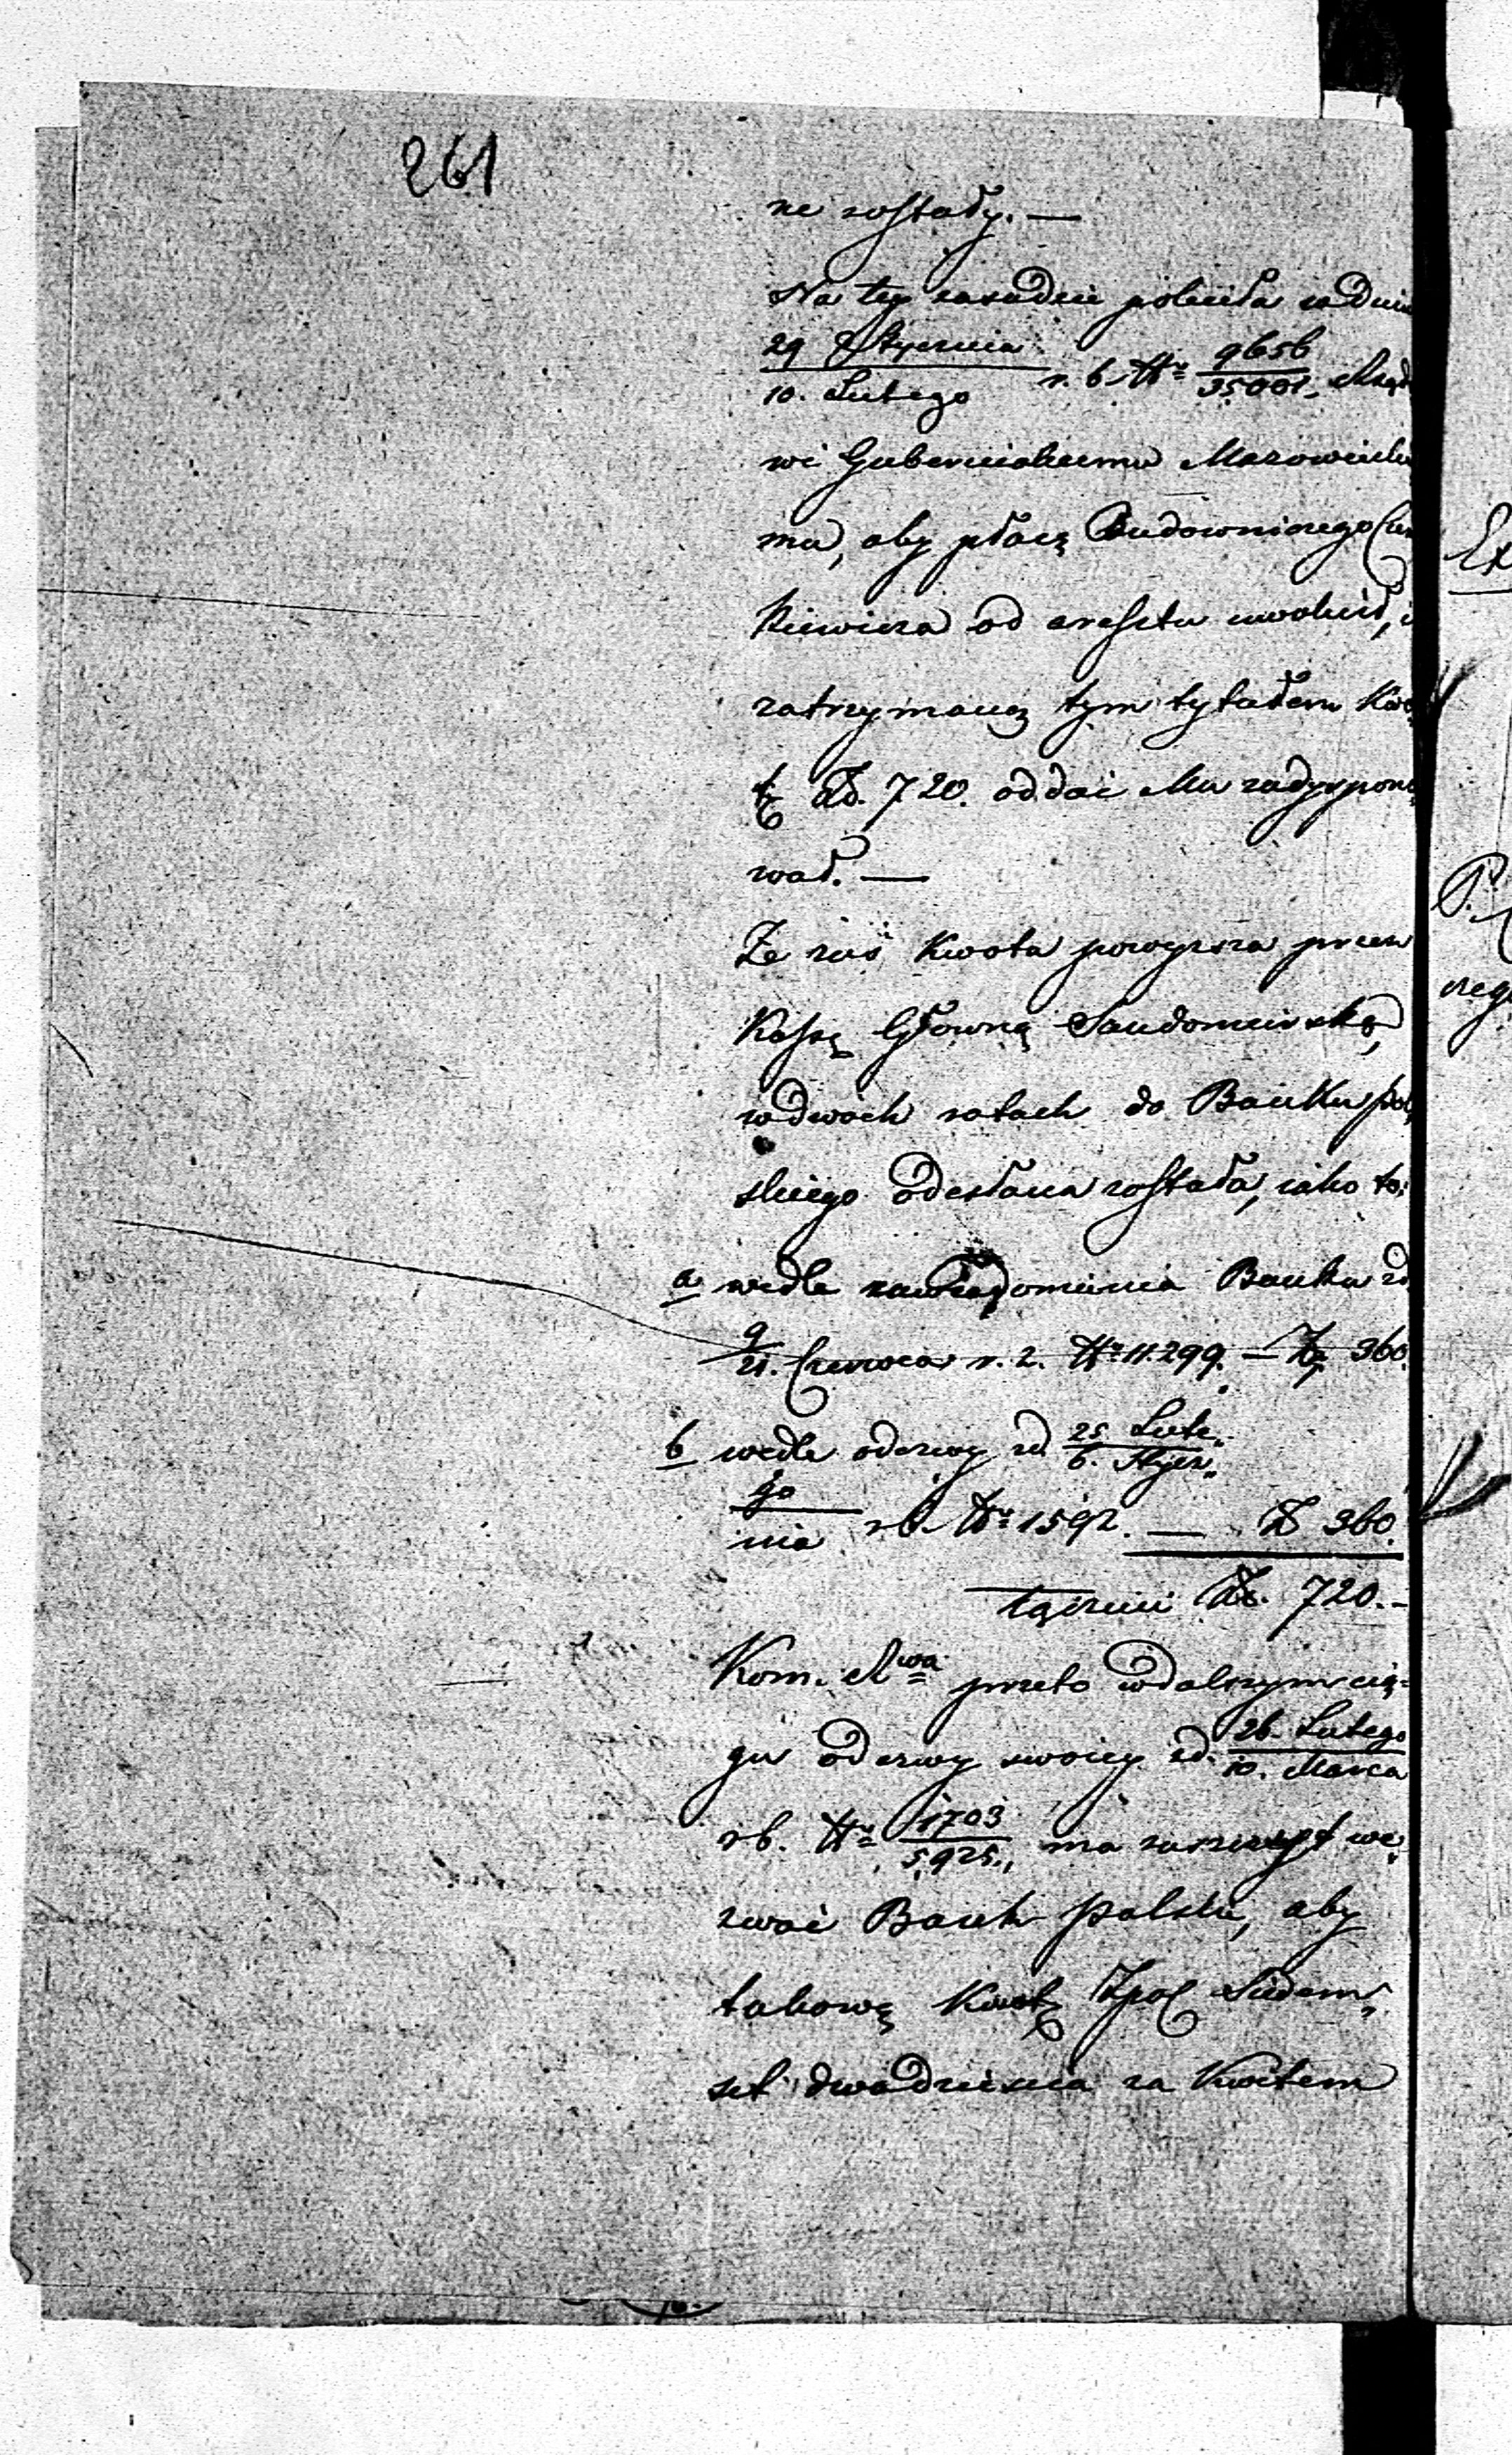 261
ne zostały. —
Na tey zasadzie poleciła zadniu
29 Stycznia / 10. Lutego r. b. Nr 9656 / 35001, Rząd
wi Gubernialnemu Mazowiecki
mu, aby płacę Budowniczego
kiewicza od aresztu uwolnił, i
zatrzymaną tym tytułem Kwo
tę Zł. 720. oddać Mu zadyspono
wał. —
Że zaś Kwota powyższa przez
Kassę Główną Sandomirską,
wdwóch ratach do Banku pol
skiego odesłana została, iako to:
a wedle zawiadomienia Banku zd
9/21. Czerwca r. z. Nr 11.299. — Złp 360.
b wedle odezwy zd 25 Lute / 6. Stycz
go / nia r.b. Nr 1592. — Zł 360.
łącznie Zł. 720. —
Kom. Rwa przeto wdalszym cią-
gu odezwy swoiey zd. 26. Lutego / 10. Marca
r b. Nr 1703 / 5925, ma zaszczyt we
zwać Bank Polski, aby
takową Kwotę Zpol Siedem
set dwadzieścia za Kwitem
Ex
P.
neg